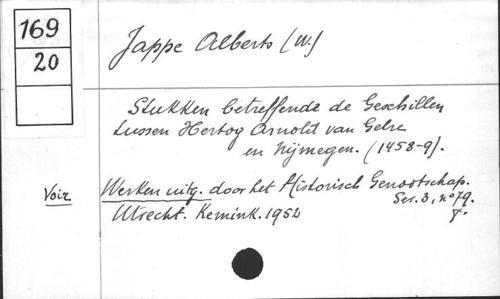 169
20
Jappe Alberts (W.)
Stukken betreffende de Geschillen
tussen Hertog Arnold van Gelre
en Nijmegen. (1458-9).
Voir
Werken uitg. door het Historisch Genootschap.
Ser. 3, nº 79.
Utrecht. Kemink. 1952